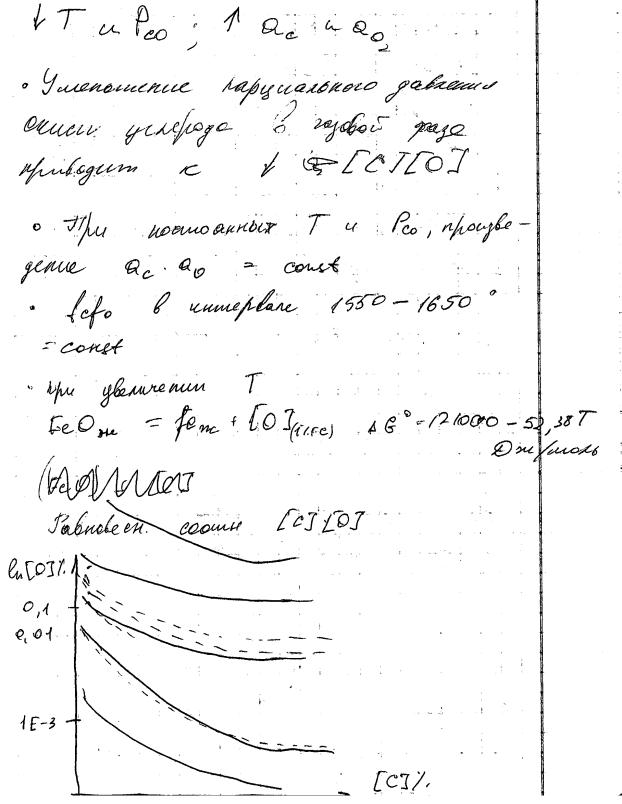 ↓ T и Pco ; ↑ ac и aO2
• Уменьшение парциального давления
окиси углерода в газовой фазе
приводит к ↓ [C][O]
• При постоянных T и Pco, произве-
дение ac · ao = const
• fcfo в интервале 1550 – 1650 °
= const
• при увеличении T
FeOж = Feж + [O](1%Fe) ΔG° = 121000 – 52,38T
Дж/моль
Равновесн. соотн [C] [O]
ln[O]%
0,1
0,01
1E-3
[C]%